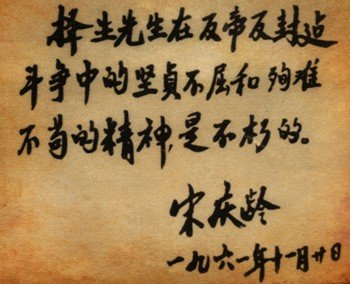 择生先生在反帝反封迠
斗争中的坚贞不屈和殉难
不苟的精神,是不朽的。
宋庆龄
一九六一年十一月廿日